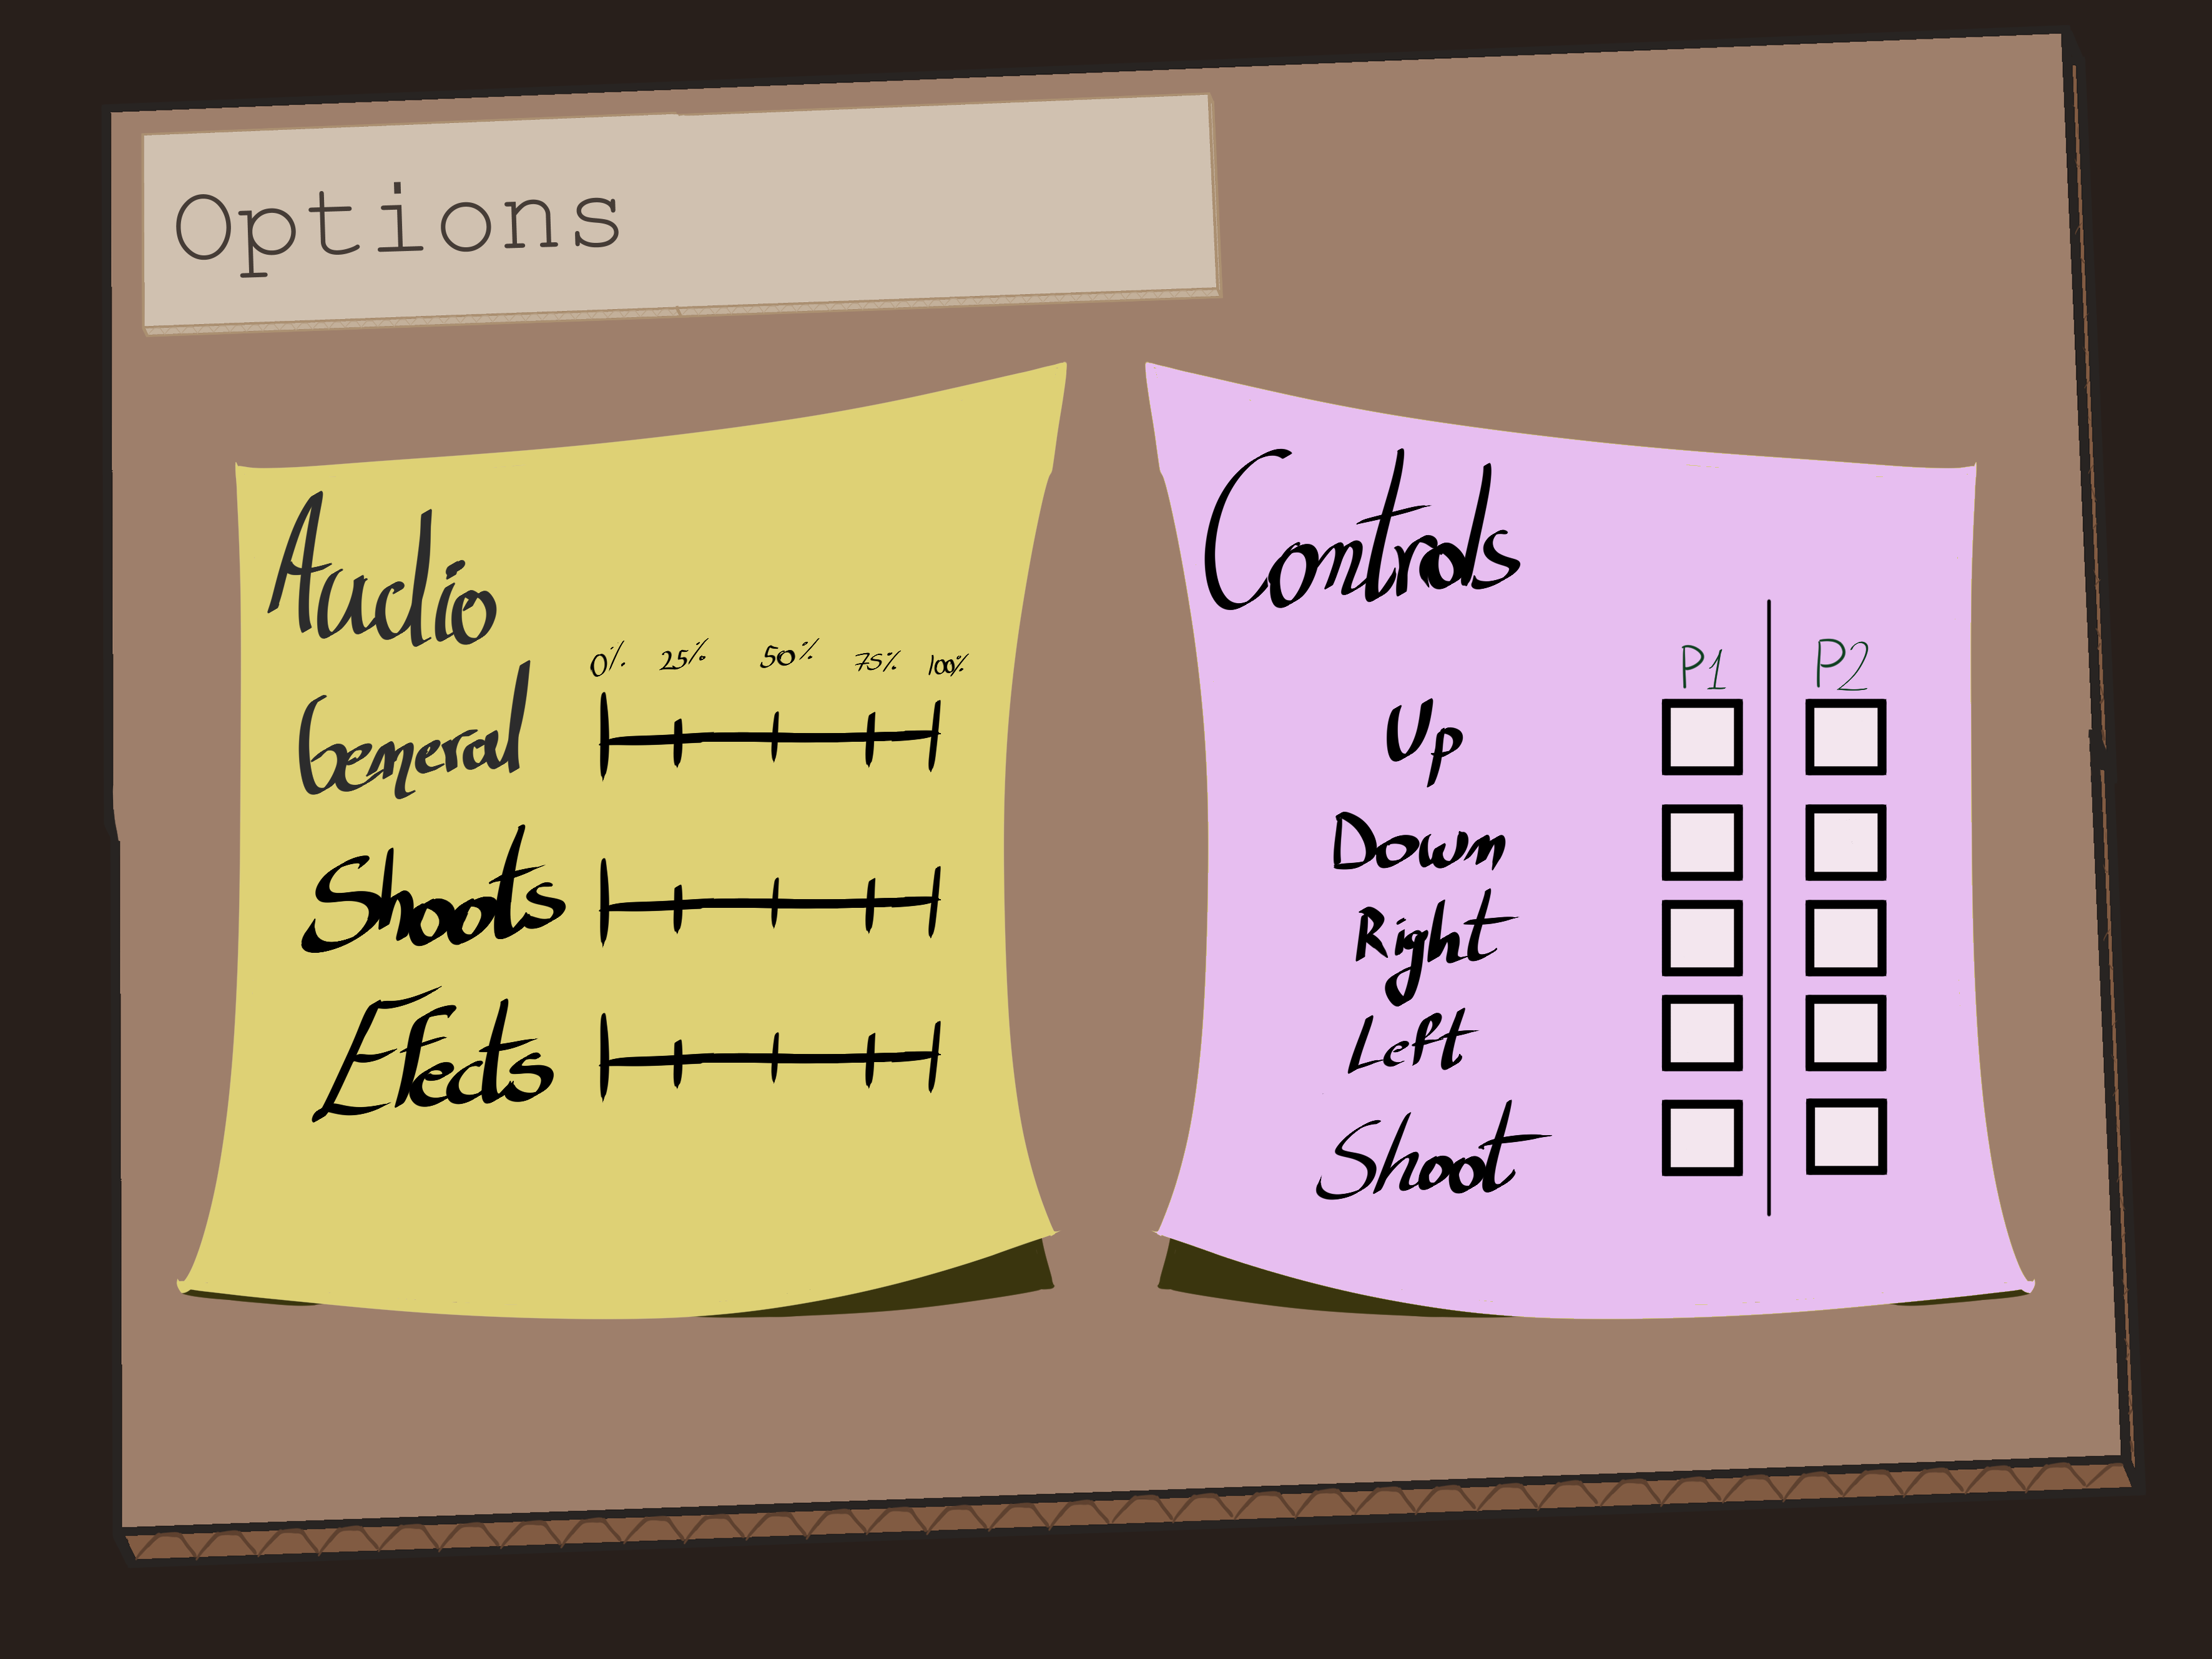 Options
Audio
0% 25% 50% 75% 100%
General
Shoots
Efects
Controls
P1 P2
Up
Down
Right
Left
Shoot